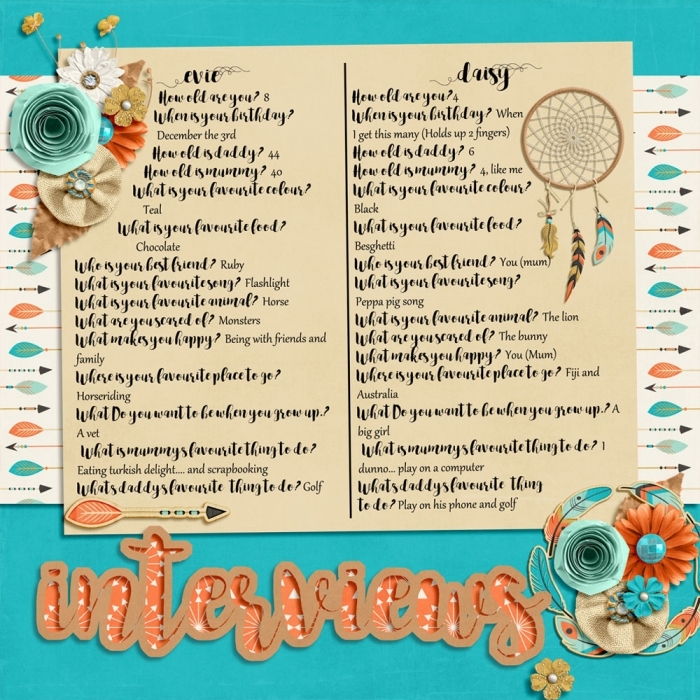 evie
How old are you? 8
When is your birthday?
December the 3rd
How old is daddy? 44
How old is mummy? 40
What is your favourite colour?
Teal
What is your favourite food?
Chocolate
Who is your best friend? Ruby
What is your favourite song? Flashlight
What is your favourite animal? Horse
What are you scared of? Monsters
What makes you happy? Being with friends and
family
Where is your favourite place to go?
Horseriding
What Do you want to be when you grow up.?
A vet
What is mummys favourite thing to do?
Eating turkish delight.... and scrapbooking
Whats daddys favourite thing to do? Golf
daisy
How old are you? 4
When is your birthday? When
I get this many (Holds up 2 fingers)
How old is daddy? 6
How old is mummy? 4, like me
What is your favourite colour?
Black
What is your favourite food?
Besghetti
Who is your best friend? You (mum)
What is your favourite song?
Peppa pig song
What is your favourite animal? The lion
What are you scared of? The bunny
What makes you happy? You (Mum)
Where is your favourite place to go? Fiji and
Australia
What Do you want to be when you grow up.? A
big girl
What is mummys favourite thing to do? I
dunno... play on a computer
Whats daddys favourite thing
to do? Play on his phone and golf
interviews